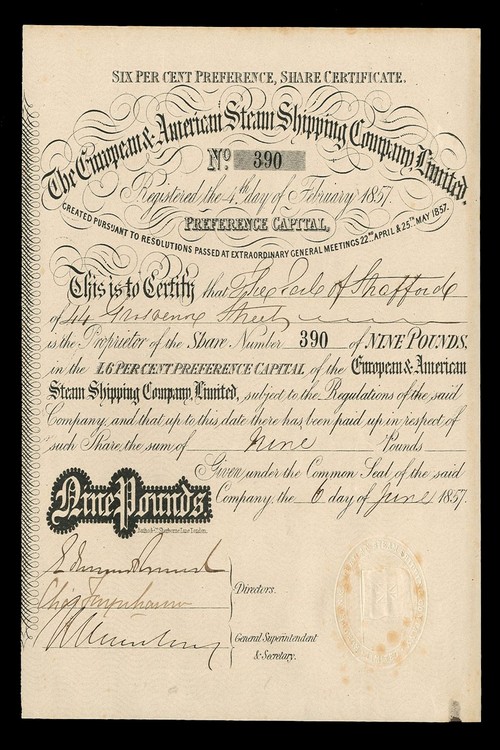 SIX PER CENT PREFERENCE, SHARE CERTIFICATE.
The European & American Steam Shipping Company, Limited.
No. 390
Registered the 4th day of February 1857.
PREFERENCE CAPITAL,
CREATED PURSUANT TO RESOLUTIONS PASSED AT EXTRAORDINARY GENERAL MEETINGS 22ND APRIL & 25TH MAY 1857.
This is to Certify that The Earl of Strafford
of 44 Grosvenor Street
is the Proprietor of the Share Number 390 of NINE POUNDS,
in the £6 PER CENT PREFERENCE CAPITAL of the European & American
Steam Shipping Company, Limited, subject to the Regulations of the said
Company, and that up to this date there has been paid up in respect of
such Share, the sum of nine Pounds
Given under the Common Seal of the said
Nine Pounds. Company, the 6 day of June 1857.
Directors.
General Superintendent
& Secretary.